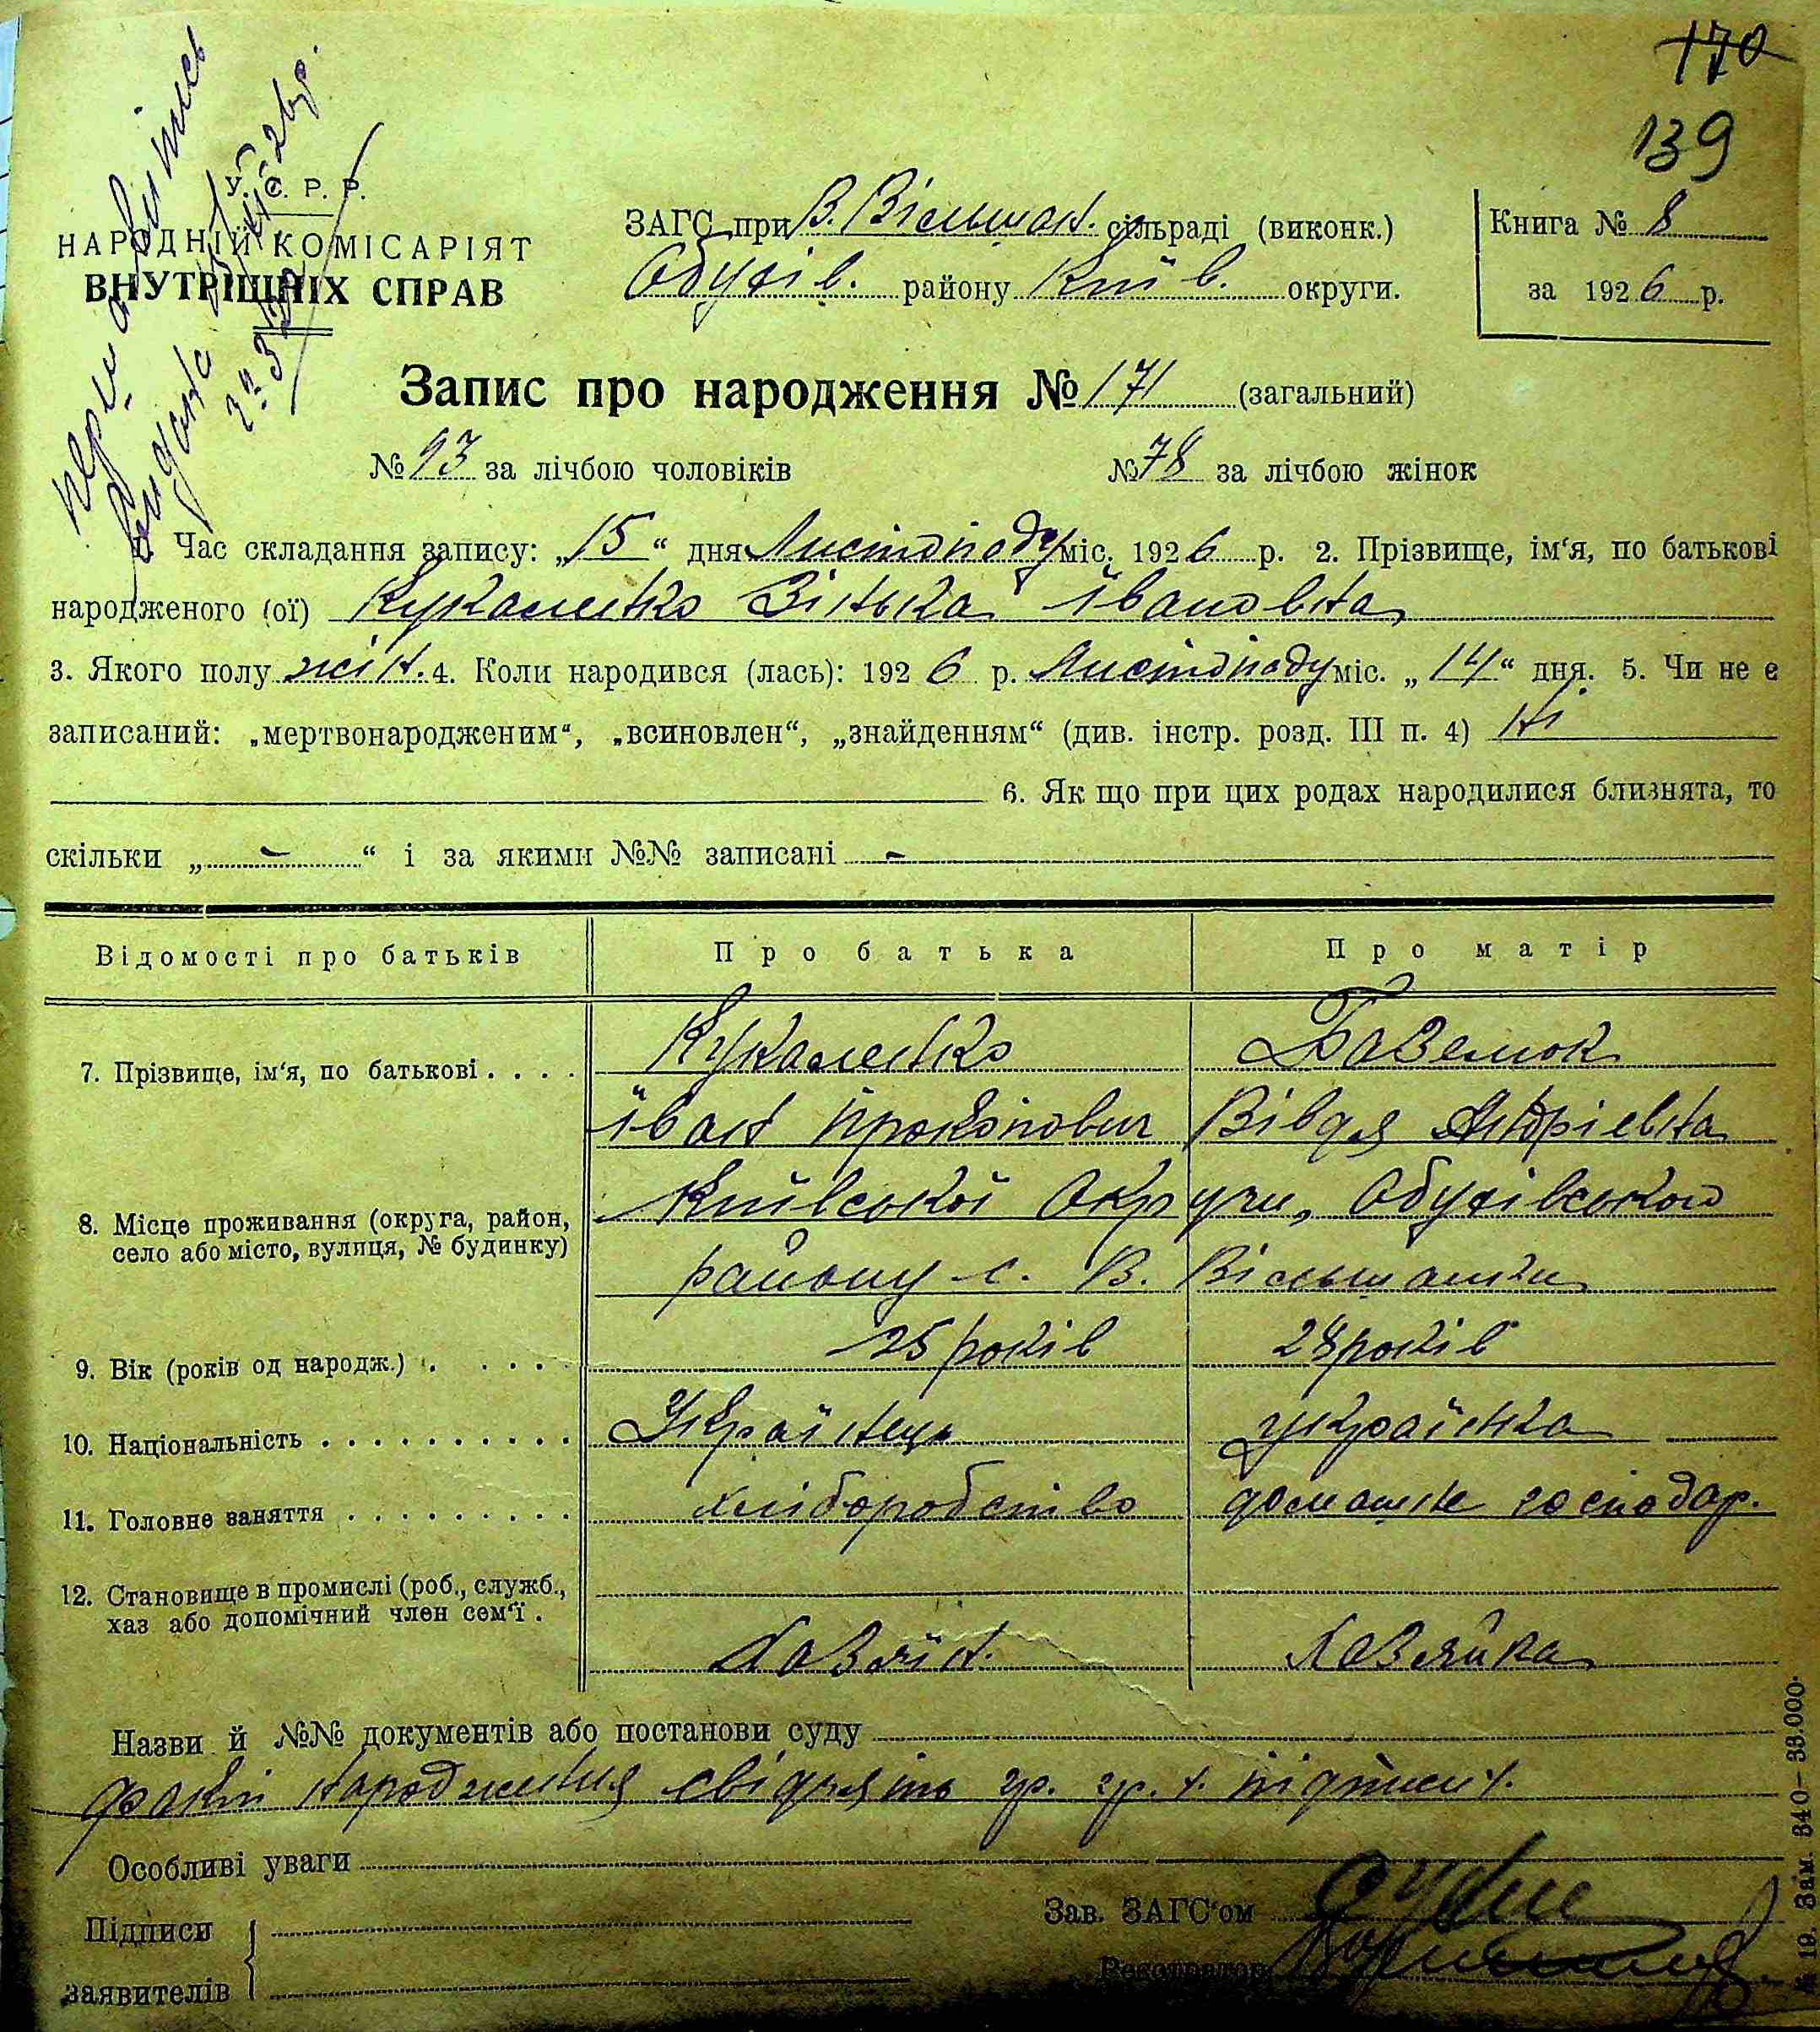 170
139
У. С. Р. Р.
НАРОДНІЙ КОМІСАРІЯТ
ВНУТРІШНІХ СПРАВ
ЗАГС при В. Вільшан. сільраді (виконк.)
Обухів. району Київ. округи.
Книга № 8
за 1926 р.
Запис про народження № 171 (загальний)
№ 93 за лічбою чоловіків № 78 за лічбою жінок
1. Час складання запису: „15“ дня Листопаду міс. 1926 р. 2. Прізвище, ім‘я, по батькові
народженого (ої) Кукаленко Зінька Івановна
3. Якого полу жін. 4. Коли народився (лась): 1926 р. Листопаду міс. „14“ дня. 5. Чи не є
записаний: „мертвонародженим“, „всиновлен“, „знайденням“ (див. інстр. розд. III п. 4) ні
6. Як що при цих родах народилися близнята, то
скільки „ - “ і за якими №№ записані -
Відомості про батьків Про батька Про матір
7. Прізвище, ім‘я, по батькові . . . . Кукаленко
Іван Прокопович Вівдя Андрієвна
8. Місце проживання (округа, район,
село або місто, вулиця, № будинку)
Київської Округи, Обухівського
району с. В. Вільшанки
9. Вік (років од народж.) . . . . . 25 років 28 років
10. Національність . . . . . . . . . . Українець українка
11. Головне заняття . . . . . . . . . хліборобство домашнє господар.
12. Становище в промислі (роб., служб.,
хаз або допомічний член сем‘ї .
Хазяїн. Хазяйка
Назви й №№ документів або постанови суду
факт народження свідчать гр. гр.
Особливі уваги
Підписи
заявителів
Зав. ЗАГС‘ом
Реєстратор
№ 19. Зам. 340—33.000.